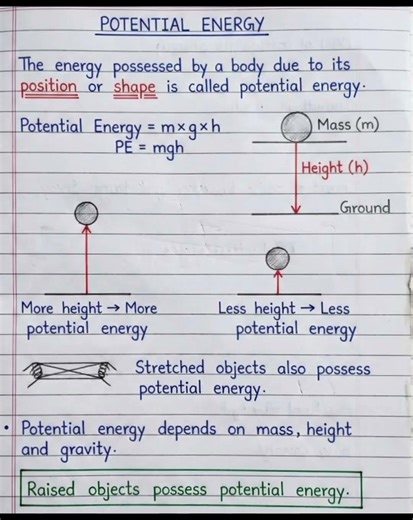 POTENTIAL ENERGY
The energy possessed by a body due to its
position or shape is called potential energy.
Potential Energy = m×g×h
PE = mgh
Mass (m)
Height (h)
Ground
More height → More
potential energy
Less height → Less
potential energy
Stretched objects also possess
potential energy.
• Potential energy depends on mass, height
and gravity.
Raised objects possess potential energy.